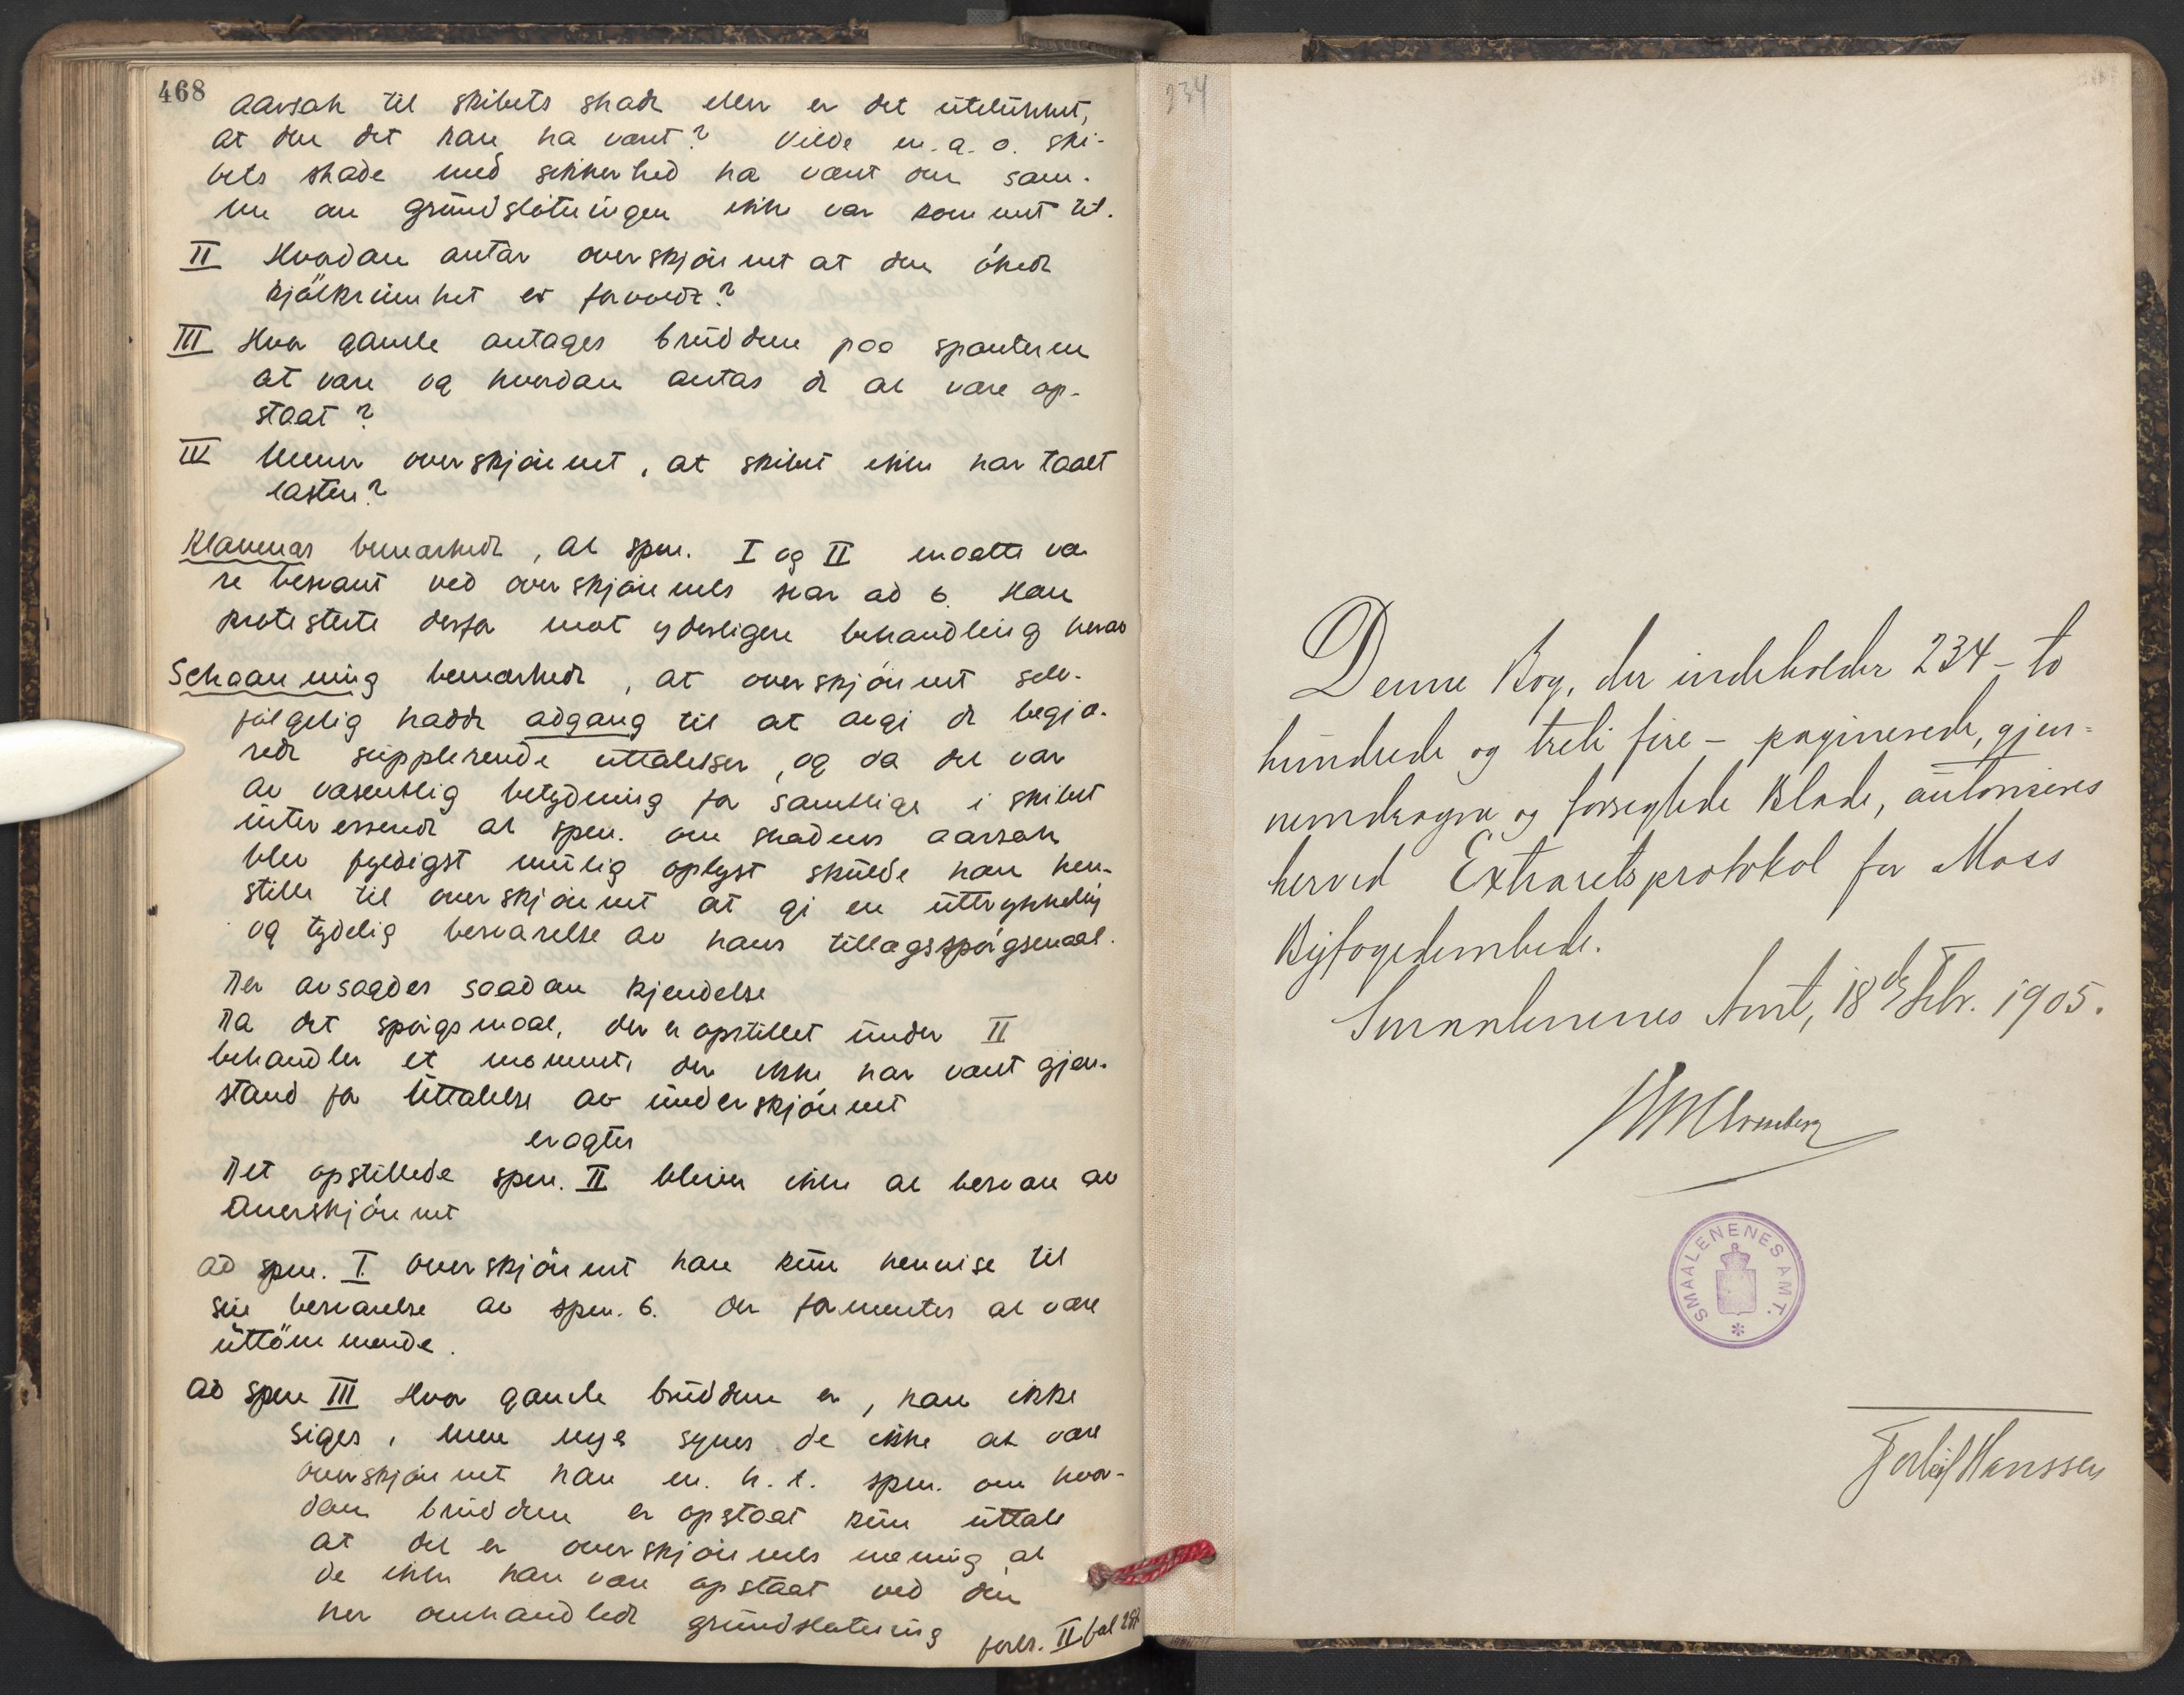 468
aarsak til skibets skade eller er det utelukket,
at den det kan ha været? Vilde m. a. o. ski-
bets skade med sikkerhed ha været den sam-
me om grundstøtningen ikke var kommet til.
II Hvordan antar overskjönnet at den ökede
kjölkrumhet er forvoldt?
III Hvor gamle antages bruddene paa spanterne
at være og hvordan antas de at være op-
staat?
IV Mener overskjönnet, at skibet ikke har taalt
lasten?
Klavenæs bemærkede, at spm. I og II maatte væ-
re besvaret ved overskjönnets svar ad 6. Han
protesterte derfor mot yderligere behandling herav
Schaanning bemærkede, at overskjönnet selv-
følgelig hadde adgang til at avgi de begjæ-
rede supplerende uttalelser, og da det var
av væsentlig betydning for samtlige i skibet
interesserede at spm. om skadens aarsak
blev fyldigst mulig oplyst skulde han hen-
stille til overskjönnet at gi en uttrykkelig
og tydelig besvarelse av hans tillægsspörgsmaal.
Der avsagdes saadan kjendelse
Da det spörgsmaal, der er opstillet under II
behandler et moment, der ikke har været gjen-
stand for Uttalelse av underskjönnet
eragtes
Det opstillede spm. II bliver ikke at besvare av
Overskjönnet
ad spm. I. Overskjönnet kan kun henvise til
sin besvarelse av spm. 6. der formentes at være
uttömmende.
ad spm III Hvor gamle bruddene er, kan ikke
siges, men nye synes de ikke at være
Overskjönnet kan m. h. t. spm. om hvor-
dan bruddene er opstaat kun uttale
at det er overskjönnets mening at
de ikke kan være opstaat ved den
her omhandlede grundstøtning forts. II fol
234
Denne Bog, der indeholder 234 – to
hundrede og treti fire – paginerede, gjen=
nemdragne og forseglede Blade, autoriseres
herved Extraretsprotokol for Moss
Byfogedembede.
Smaalenenes Amt, 18de Febr. 1905.
SMAALENENES AMT.
Hanssen